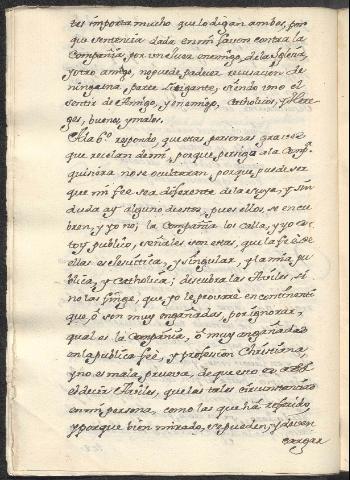 tas importa mucho que lo digan ambos, por
que sentencia dada en mi favor contra la
Compañia, por un el uno enemigo, de la Iglesia,
y otro amigo, no puede padecer recusacion de
ninguna parte Litigante, siendo uno el
sentir de Amigo, y enemigo, Catholicos, y Here-
ges, buenos, y malos.
A la 6º respondo, que estas personas graves
que recelan de mi, porque persigo a la Comp.
quisiera no se ocultaran, porque puede ser
que mi fee sea diferente de la suya, y sin
duda ay alguno de estos, pues ellos, se encu
bren, y yo no; la Compañia los cella, y yo es-
toy publico, señales son estas, que la feé de
ellas es eclesiastica, y singular, y la mia pu
blica, y Catholica; descubralas Aviles, si
no las finge, que yo le provare en continenti
que, ó son muy engañadas, por ignorar,
qual es la Compañia, ó muy engañadas
en la publica feé, y profesion Christiana,
y no es mala prueva, de que esto es
el decir Aviles, que las tales circunstancias
en mi persona, como las que há referido,
y porque bien mirado, se pueden, y deven
cargar